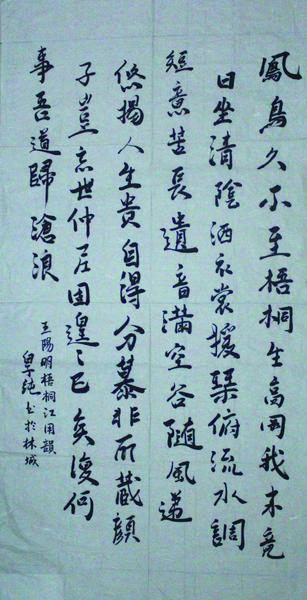 鳳鳥久不至梧桐生高岡我来竟
日坐清陰洒衣裳援琴俯流水調
短意苦長遺音滿空谷随風遞
悠揚人生貴自得外慕非所藏顏
子豈忘世仲尼固遑々已矣復何
事吾道歸滄浪
王陽明梧桐江用韻
純书於林城